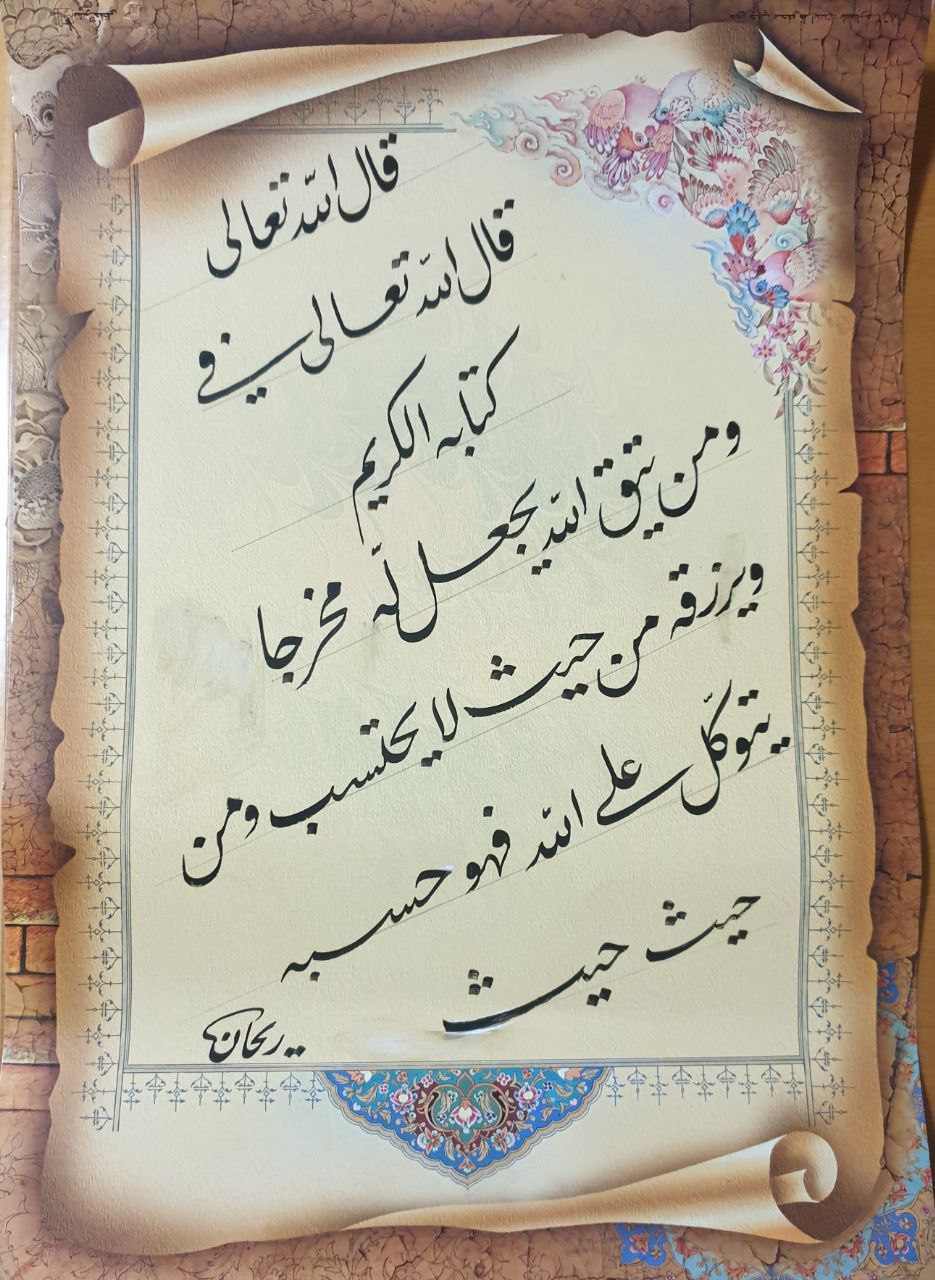 قال الله تعالى
قال الله تعالى في
كتابه الكريم
ومن يتق الله يجعل لّه مخرجا
ويرزقه من حيث لا يحتسب ومن
يتوكّل على الله فهو حسبه
حيث حيث
ريحان